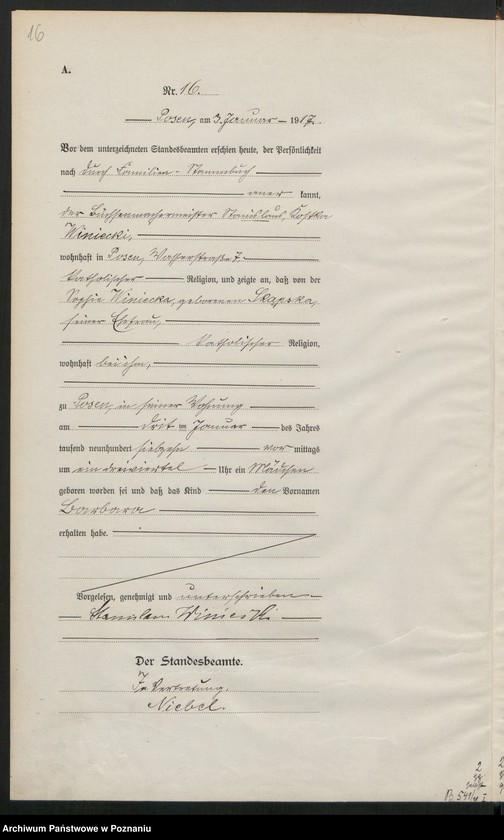 16
A.
Nr. 16.
Posen, am 3. Januar 1917.
Vor dem unterzeichneten Standesbeamten erschien heute, der Persönlichkeit
nach durch Familien-Stammbuch
aner kannt,
der Büchsenmachermeister Stanislaus Kostka
Winiecki,
wohnhaft in Posen, Wasserstraße 7,
katholischer Religion, und zeigte an, daß von der
Sophie Winiecka, geborenen Skapska,
seiner Ehefrau,
katholischer Religion,
wohnhaft bei ihm,
zu Posen, in seiner Wohnung
am dritten Januar des Jahres
tausend neunhundert siebzehn vor mittags
um ein dreiviertel Uhr ein Mädchen
geboren worden sei und daß das Kind den Vornamen
Barbara
erhalten habe.
Vorgelesen, genehmigt und unterschrieben
Stanislaus Winiecki
Der Standesbeamte.
In Vertretung.
Niebel.
Archiwum Państwowe w Poznaniu